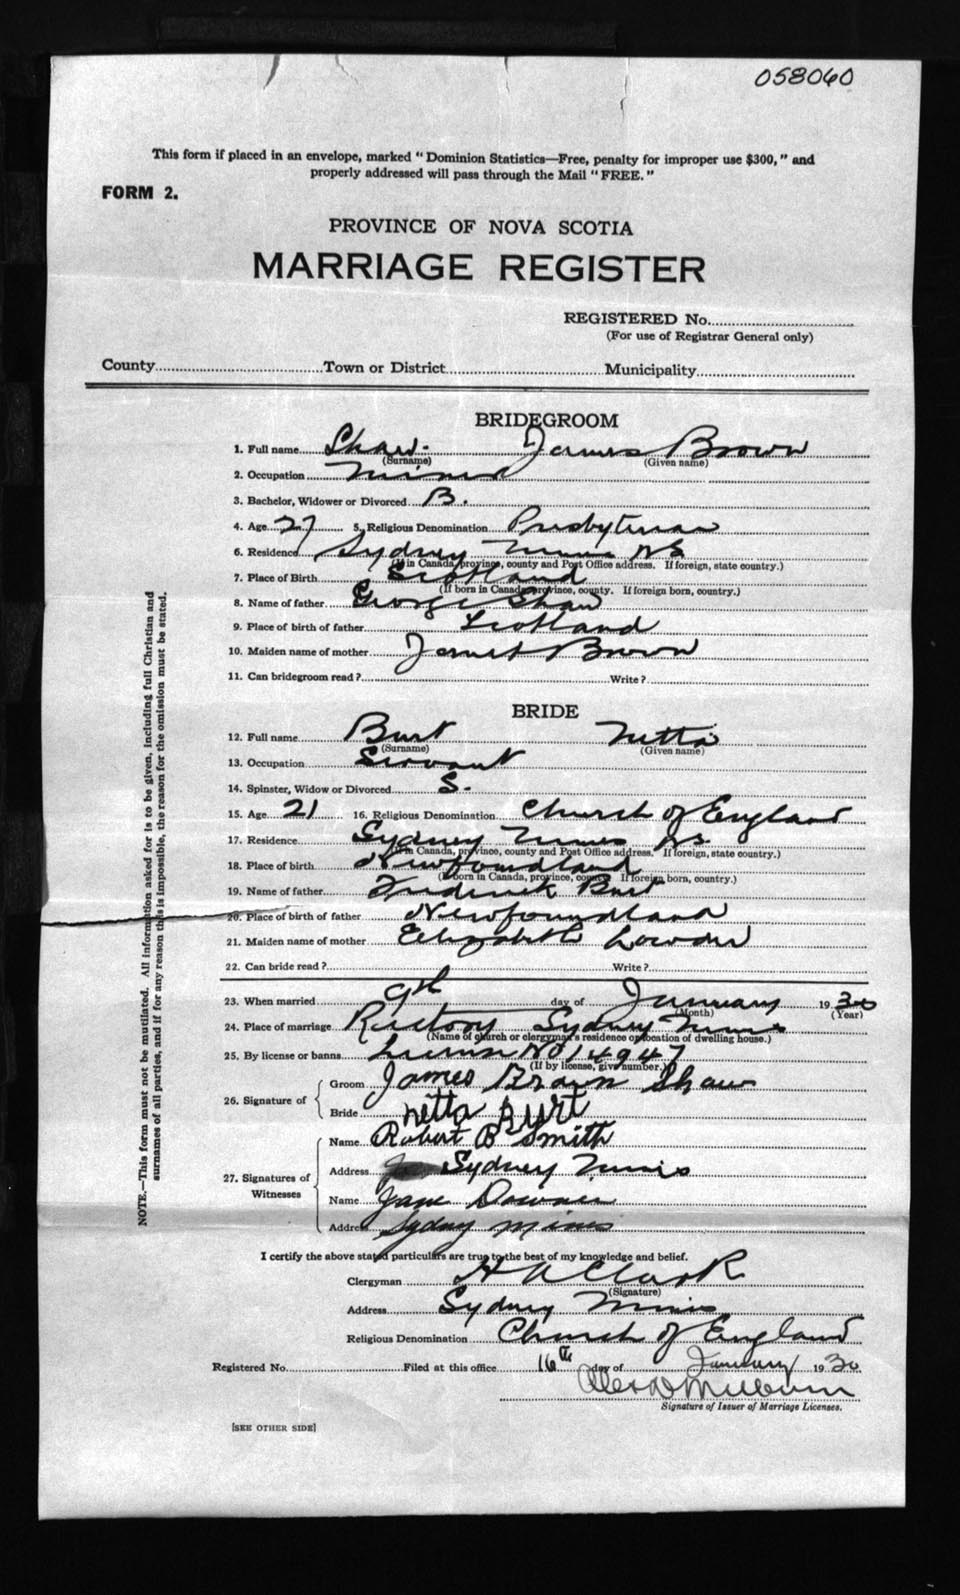 058060
This form if placed in an envelope, marked "Dominion Statistics—Free, penalty for improper use $300," and
properly addressed will pass through the Mail "FREE."
FORM 2.
PROVINCE OF NOVA SCOTIA
MARRIAGE REGISTER
REGISTERED No.
(For use of Registrar General only)
County Town or District Municipality
BRIDEGROOM
1. Full name Shaw. James Brown
(Surname) (Given name)
2. Occupation Miner
3. Bachelor, Widower or Divorced B.
4. Age 27 5. Religious Denomination Presbyterian
6. Residence Sydney Mines NS
(If in Canada, province, county and Post Office address. If foreign, state country.)
7. Place of Birth Scotland
(If born in Canada, province, county. If foreign born, country.)
8. Name of father George Shaw
9. Place of birth of father Scotland
10. Maiden name of mother Janet Brown
11. Can bridegroom read? Write?
BRIDE
12. Full name Burt Netta
(Surname) (Given name)
13. Occupation Servant
14. Spinster, Widow or Divorced S.
15. Age 21 16. Religious Denomination Church of England
17. Residence Sydney Mines NS.
(If in Canada, province, county and Post Office address. If foreign, state country.)
18. Place of birth Newfoundland
(If born in Canada, province, county. If foreign born, country.)
19. Name of father Frederick Burt
20. Place of birth of father Newfoundland
21. Maiden name of mother Elizabeth
22. Can bride read? Write?
23. When married 9th day of January 1930
(Month) (Year)
24. Place of marriage Rectory Sydney Mines
(Name of church or clergyman's residence or location of dwelling house.)
25. By license or banns License No 14947
(If by license, give number.)
26. Signature of
Groom James Brown Shaw
Bride Netta Burt
27. Signatures of Witnesses
Name Robert B Smith
Address Sydney Mines
Name Jane Downie
Address Sydney Mines
I certify the above stated particulars are true to the best of my knowledge and belief.
Clergyman H A Clark
(Signature)
Address Sydney Mines
Religious Denomination Church of England
Registered No. Filed at this office 16th day of January 1930
Signature of Issuer of Marriage Licenses.
[SEE OTHER SIDE]
NOTE.—This form must not be mutilated. All information asked for is to be given, including full Christian and
surnames of all parties, and if for any reason this is impossible, the reason for the omission must be stated.